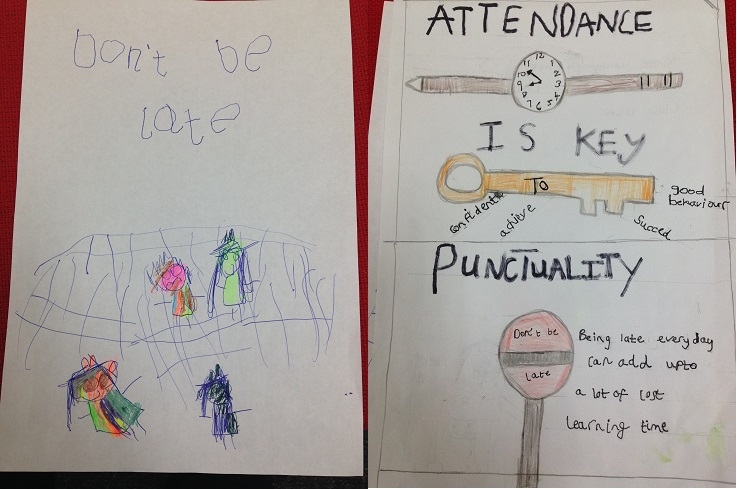 Don't be
late
ATTENDANCE
12
11
1
10
2
9
3
8
4
7
6
5
IS KEY
To
confidente
achive
Succed
good
behaviour
PUNCTUALITY
Don't be
late
Being late everyday
can add upto
a lot of lost
learning time